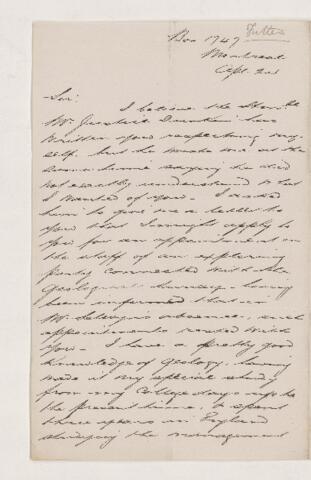 Box 1747 Tutter
Montreal
Apl. 2nd
Sir;
I believe the Honble
Mr. Justice Dunkin has
written you respecting my-
self, but he wrote me at the
same time saying he did
not exactly understand what
I wanted of you. I asked
him to give me a letter to
you that I might apply to
you for an appointment on
the staff of an exploring
party connected with the
Geological Survey - having
been informed that in
Mr. Selwyn's absence, such
appointments rested with
you - I have a pretty good
knowledge of Geology, having
made it my special study
from my College days up to
the present time, & spent
three years in England
studying the management